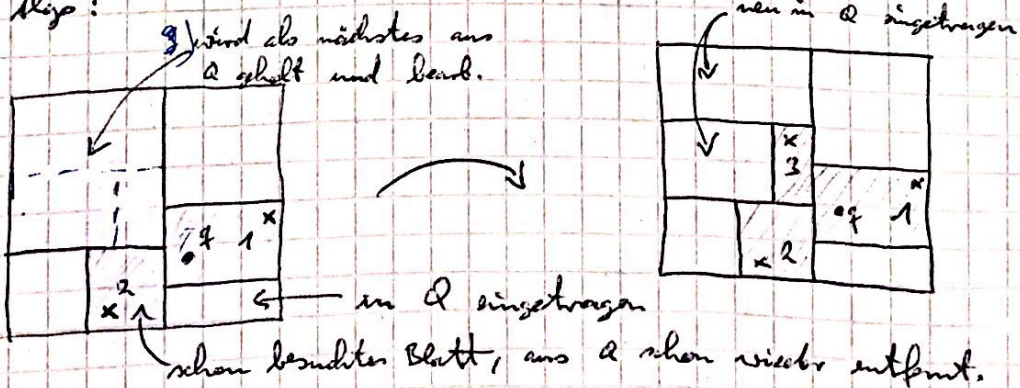 Algo:
3) wird als nächstes aus
Q geholt und bearb.
neu in Q eingetragen
x
3
q 1 x
x 2
q 1 x
2
x
in Q eingetragen
schon besuchtes Blatt, aus Q schon wieder entfernt.